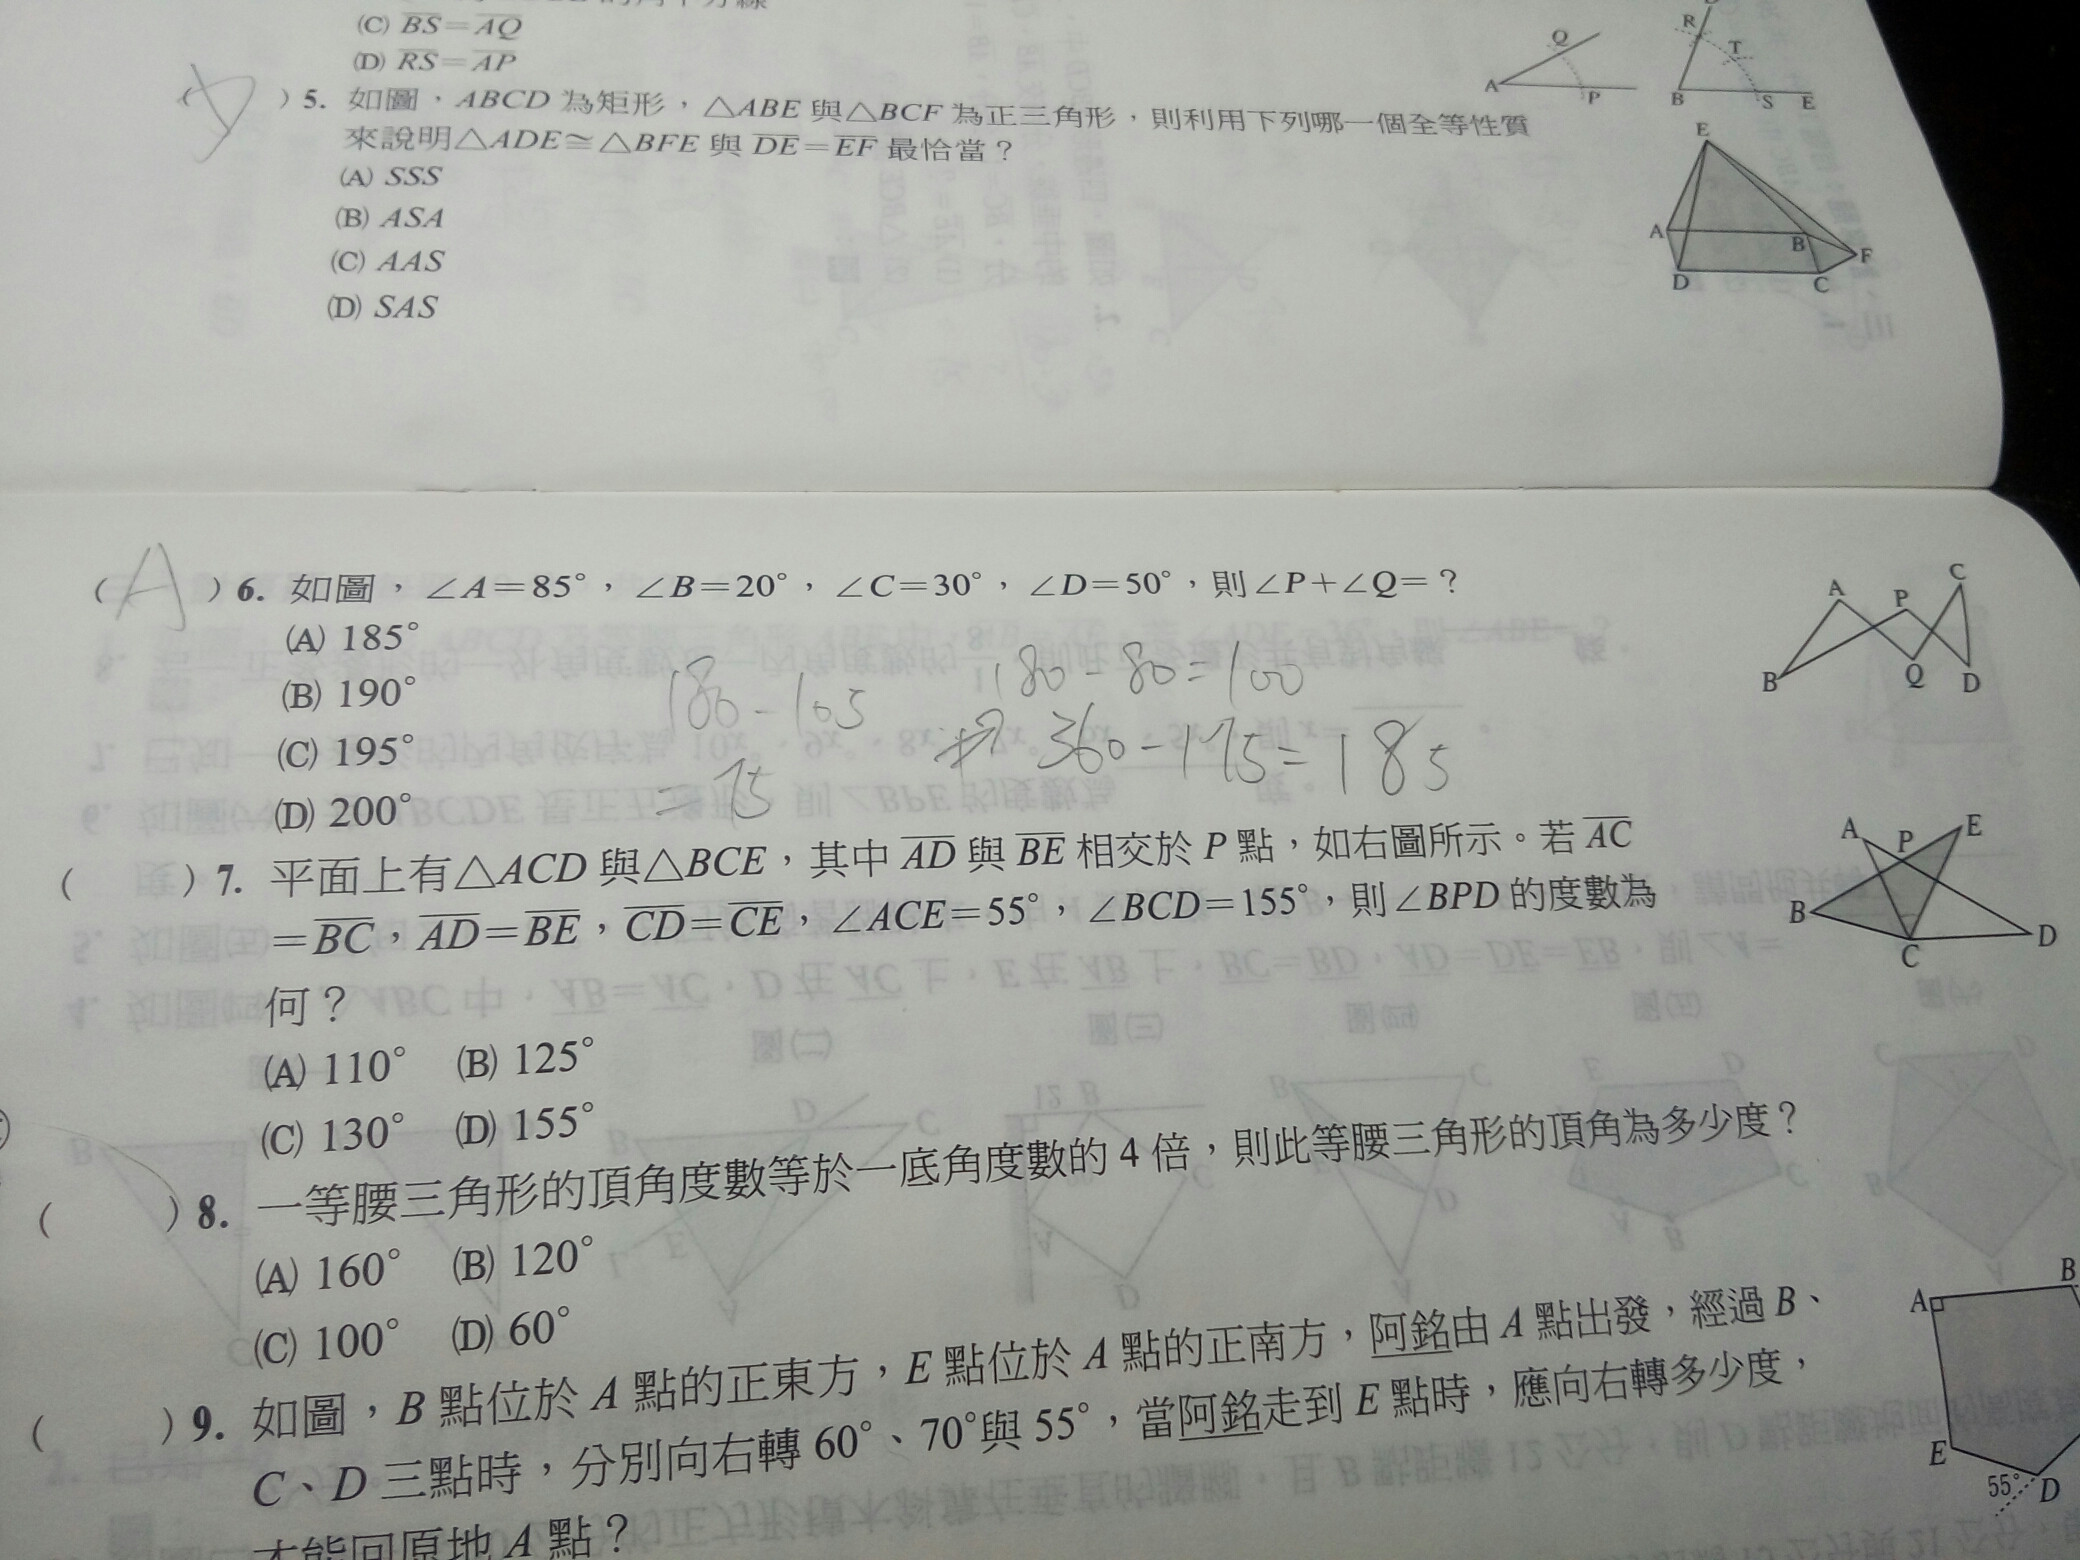 (C) BS=AQ
(D) RS=AP
Q
A
P
R
T
B
S
E
)5. 如圖，ABCD 為矩形，△ABE 與△BCF 為正三角形，則利用下列哪一個全等性質
來說明△ADE≅△BFE 與 DE=EF 最恰當？
(A) SSS
(B) ASA
(C) AAS
(D) SAS
E
A
B
F
D
C
( A )6. 如圖，∠A=85°，∠B=20°，∠C=30°，∠D=50°，則∠P+∠Q=？
(A) 185°
(B) 190°
(C) 195°
(D) 200°
180-105
=75
180-80=100
360-175=185
A
P
C
B
Q
D
( )7. 平面上有△ACD 與△BCE，其中 AD 與 BE 相交於 P 點，如右圖所示。若 AC
=BC，AD=BE，CD=CE，∠ACE=55°，∠BCD=155°，則∠BPD 的度數為
何？
(A) 110° (B) 125°
(C) 130° (D) 155°
A
P
E
B
C
D
( )8. 一等腰三角形的頂角度數等於一底角度數的 4 倍，則此等腰三角形的頂角為多少度？
(A) 160° (B) 120°
(C) 100° (D) 60°
( )9. 如圖，B 點位於 A 點的正東方，E 點位於 A 點的正南方，阿銘由 A 點出發，經過 B、
C、D 三點時，分別向右轉 60°、70°與 55°，當阿銘走到 E 點時，應向右轉多少度，
才能回原地 A 點？
A
B
E
55°
D